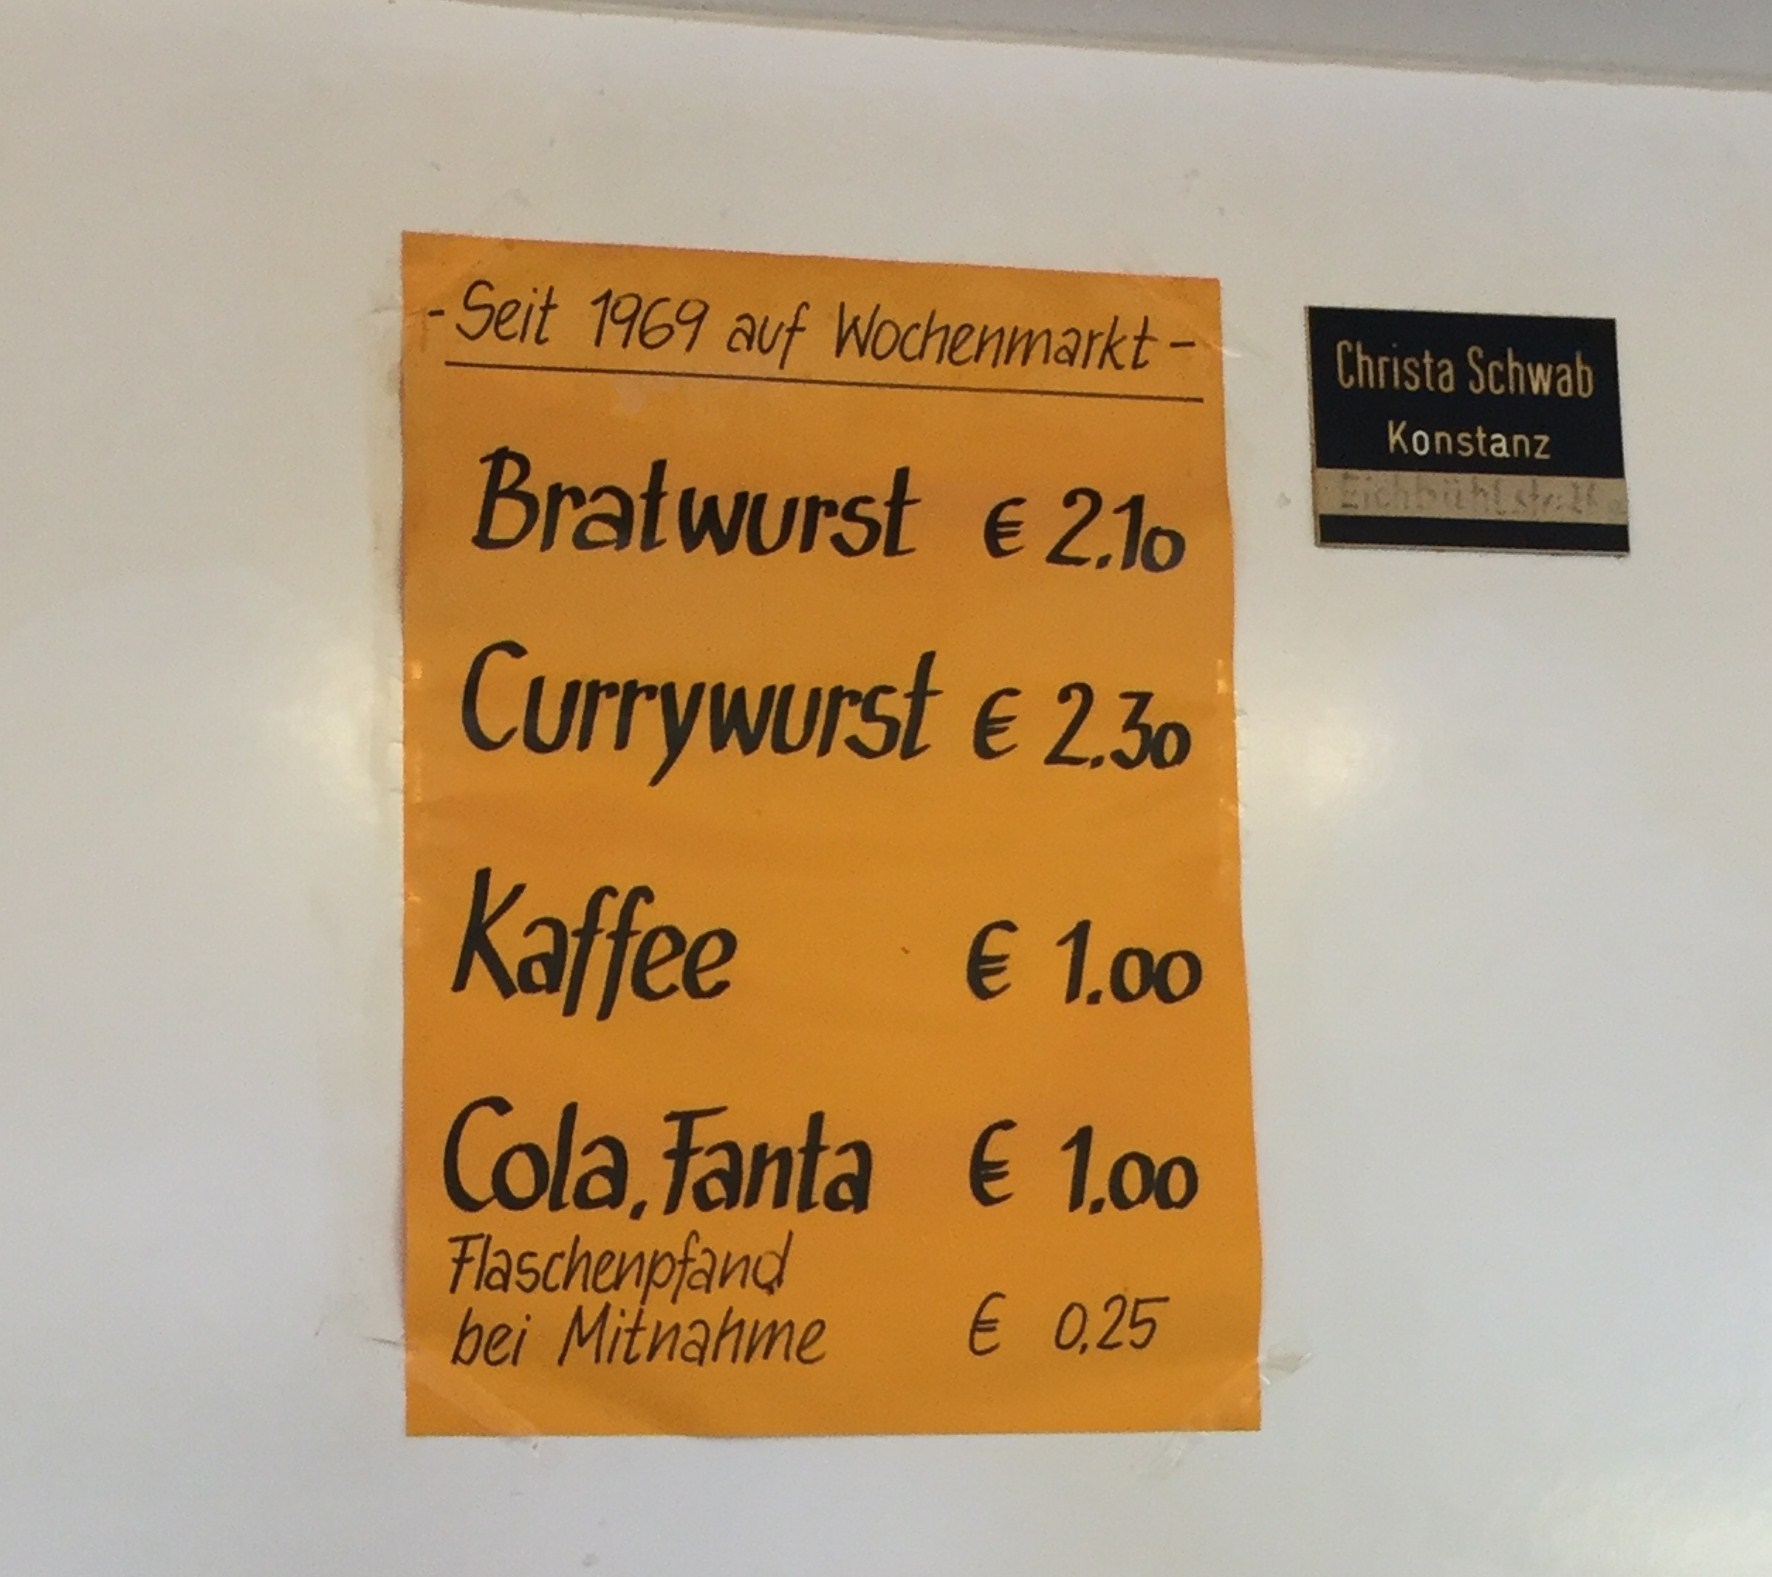 - Seit 1969 auf Wochenmarkt -
Bratwurst € 2.10
Currywurst € 2.30
Kaffee € 1.00
Cola, Fanta € 1.00
Flaschenpfand
bei Mitnahme € 0,25
Christa Schwab
Konstanz